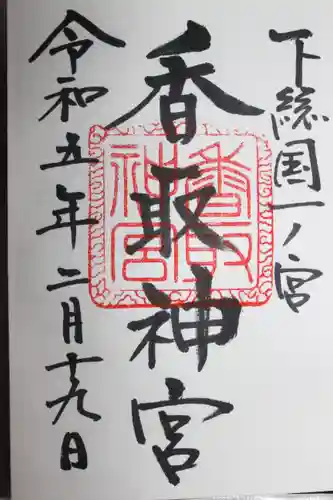 下総国一ノ宮
香取神宮
香取神宮
令和五年二月十九日